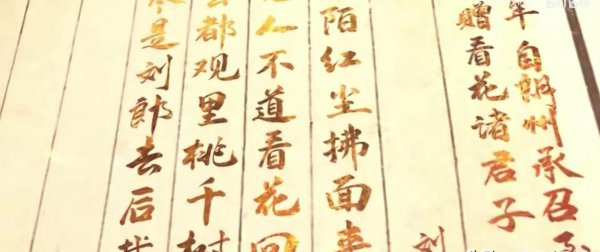 年自朗州承召
赠看花诸君子
刘
陌红尘拂面来
人不道看花回
都观里桃千树
尽是刘郎去后